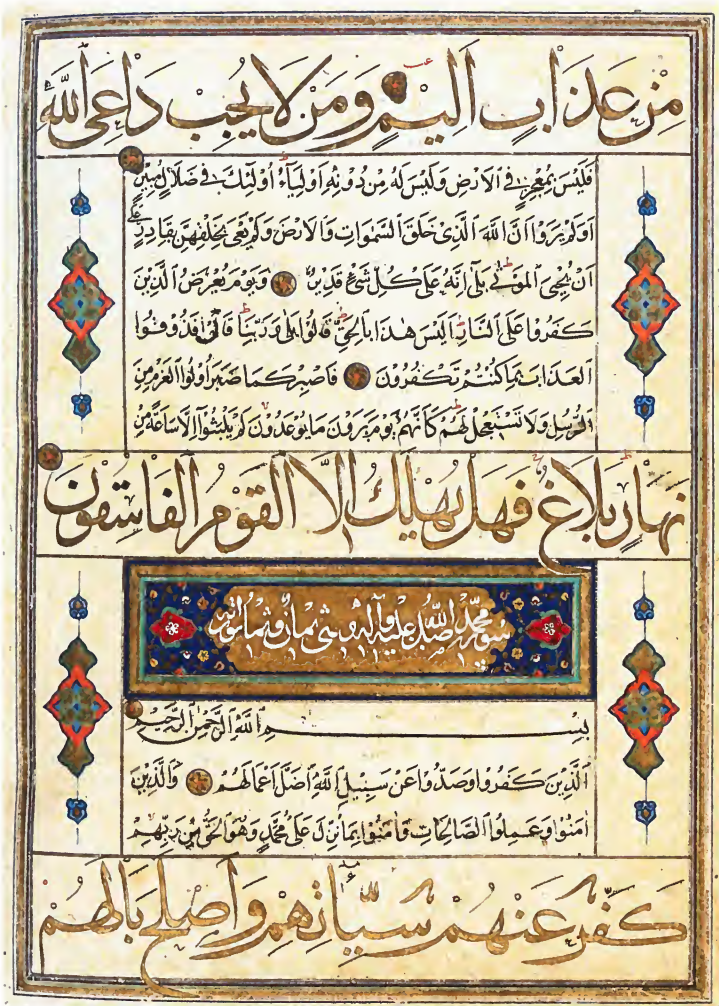 مِنْ عَذَابٍ اَلِيمٍ وَمَنْ لَا يُجِبْ دَاعِيَ اللّٰهِ
فَلَيْسَ بِمُعْجِزٍ فِي الْاَرْضِ وَلَيْسَ لَهُ مِنْ دُونِهِ اَوْلِيَاءُ اُولٰئِكَ فِي ضَلَالٍ مُبِينٍ
اَوَلَمْ يَرَوْا اَنَّ اللّٰهَ الَّذِي خَلَقَ السَّمٰوَاتِ وَالْاَرْضَ وَلَمْ يَعْيَ بِخَلْقِهِنَّ بِقَادِرٍ عَلٰى
اَنْ يُحْيِيَ الْمَوْتٰى بَلٰى اِنَّهُ عَلٰى كُلِّ شَيْءٍ قَدِيرٌ وَيَوْمَ يُعْرَضُ الَّذِينَ
كَفَرُوا عَلَى النَّارِ اَلَيْسَ هٰذَا بِالْحَقِّ قَالُوا بَلٰى وَرَبِّنَا قَالَ فَذُوقُوا
الْعَذَابَ بِمَا كُنْتُمْ تَكْفُرُونَ فَاصْبِرْ كَمَا صَبَرَ اُولُوا الْعَزْمِ مِنَ
الرُّسُلِ وَلَا تَسْتَعْجِلْ لَهُمْ كَاَنَّهُمْ يَوْمَ يَرَوْنَ مَا يُوعَدُونَ لَمْ يَلْبَثُوا اِلَّا سَاعَةً مِنْ
نَهَارٍ بَلَاغٌ فَهَلْ يُهْلَكُ اِلَّا الْقَوْمُ الْفَاسِقُونَ
سورة محمد صلى الله عليه وآله وهي ثمان وثلاثون آية
بِسْمِ اللّٰهِ الرَّحْمٰنِ الرَّحِيمِ
اَلَّذِينَ كَفَرُوا وَصَدُّوا عَنْ سَبِيلِ اللّٰهِ اَضَلَّ اَعْمَالَهُمْ وَالَّذِينَ
اٰمَنُوا وَعَمِلُوا الصَّالِحَاتِ وَاٰمَنُوا بِمَا نُزِّلَ عَلٰى مُحَمَّدٍ وَهُوَ الْحَقُّ مِنْ رَبِّهِمْ
كَفَّرَ عَنْهُمْ سَيِّاٰتِهِمْ وَاَصْلَحَ بَالَهُمْ